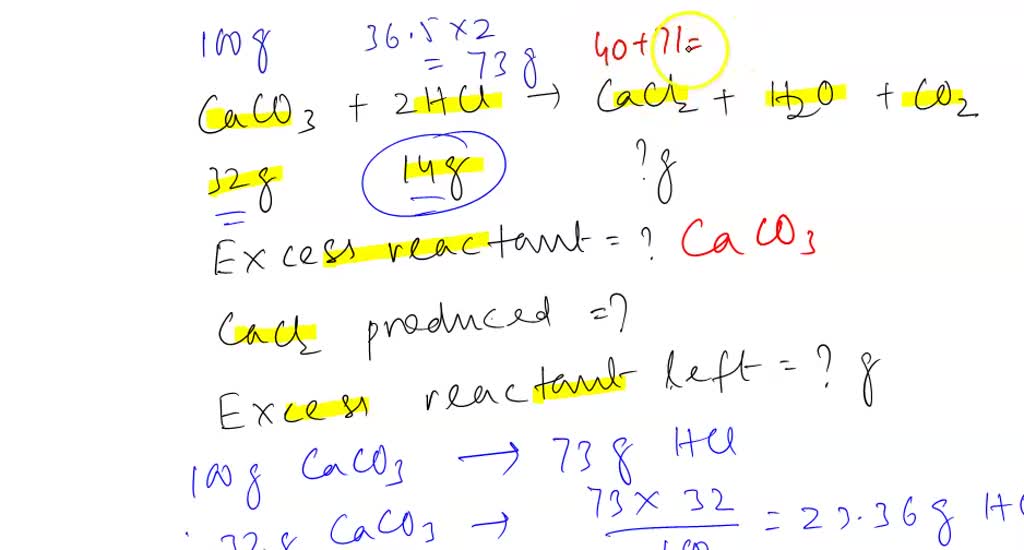 100g 36.5×2 40+71=
= 73g
CaCO3 + 2HCl → CaCl2 + H2O + CO2
32g 14g ?g
Excess reactant = ? CaCO3
CaCl2 produced = ?
Excess reactant left = ? g
100g CaCO3 → 73g HCl
32g CaCO3 → 73 × 32 / 100 = 23.36g